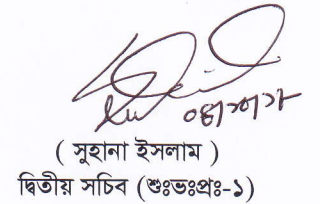 ( সুহানা ইসলাম )
দ্বিতীয় সচিব (শুঃভঃপ্রঃ-১)